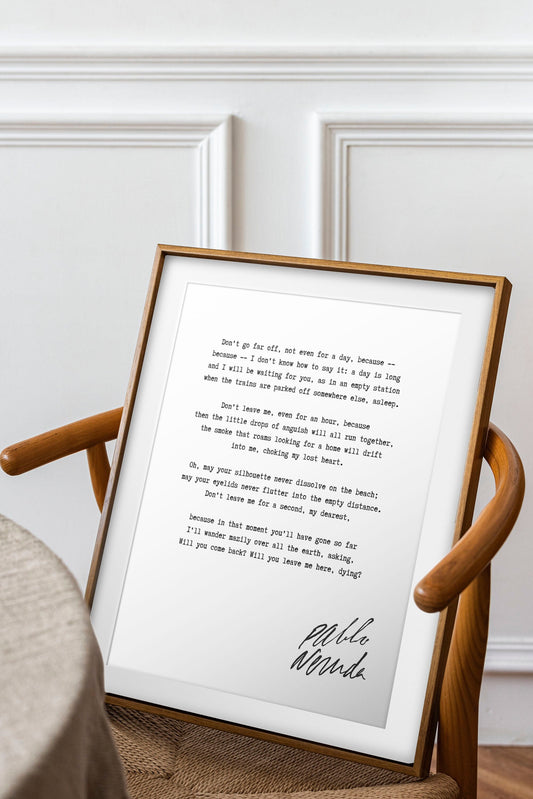 Don't go far off, not even for a day, because --
because -- I don't know how to say it: a day is long
and I will be waiting for you, as in an empty station
when the trains are parked off somewhere else, asleep.
Don't leave me, even for an hour, because
then the little drops of anguish will all run together,
the smoke that roams looking for a home will drift
into me, choking my lost heart.
Oh, may your silhouette never dissolve on the beach;
may your eyelids never flutter into the empty distance.
Don't leave me for a second, my dearest,
because in that moment you'll have gone so far
I'll wander mazily over all the earth, asking,
Will you come back? Will you leave me here, dying?
Pablo
Neruda